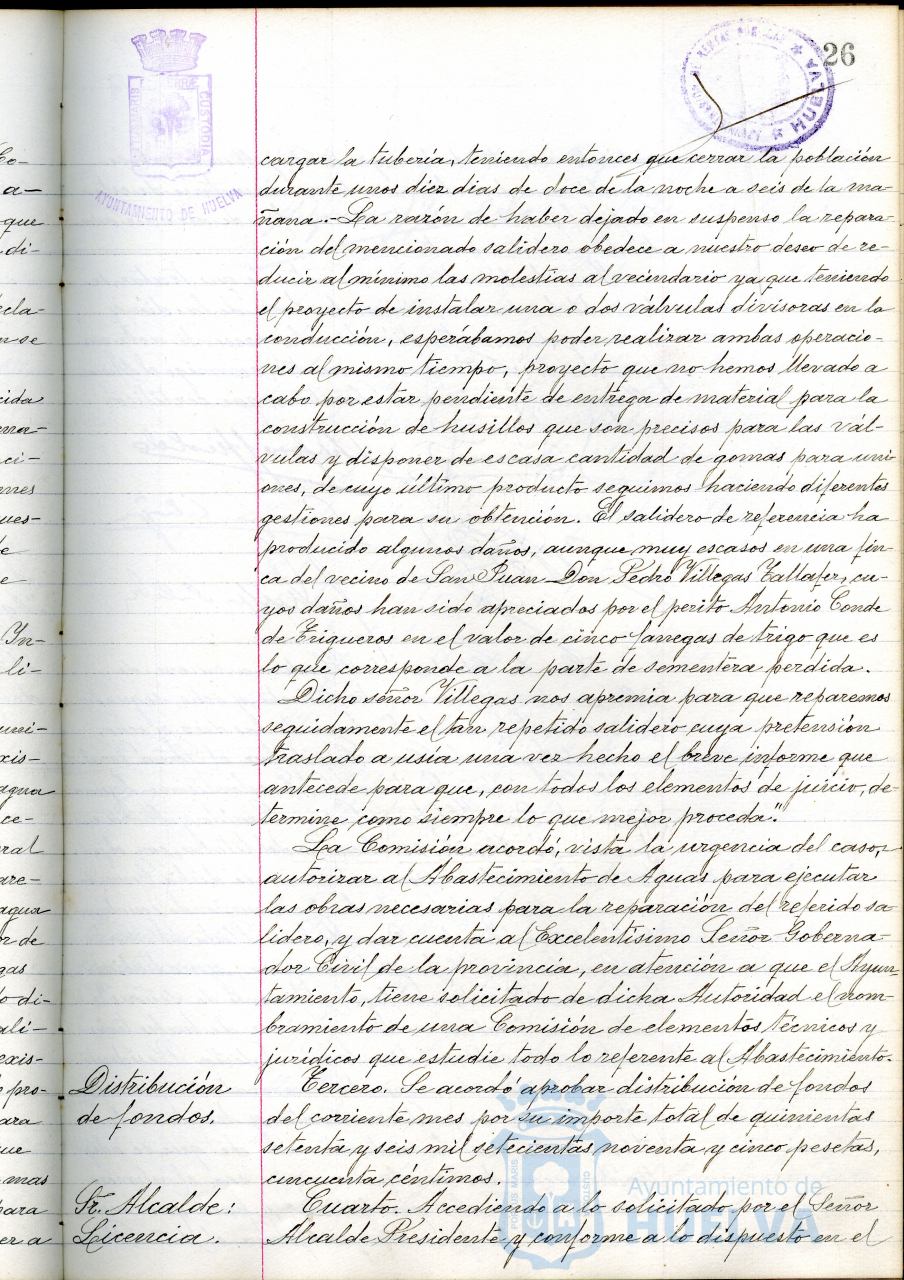 26
PORTUS MARIS
ET TERRÆ
CUSTODIA
AYUNTAMIENTO DE HUELVA
HUELVA
Co-
a-
que
di-
ecla-
n se
cida
ma-
ci-
nes
ues-
de
e
In-
li-
uni-
xis-
agua
ce-
ral
are-
agua
or de
gas
do di-
ali-
exis-
e pro-
ara
que
mas
para
er a
cargar la tubería, teniendo entonces que cerrar la población
durante unos diez dias de doce de la noche a seis de la ma-
ñana.- La razón de haber dejado en suspenso la repara-
ción del mencionado salidero obedece a nuestro deseo de re-
ducir al mínimo las molestias al vecindario ya que teniendo
el proyecto de instalar una o dos válvulas divisoras en la
conducción, esperábamos poder realizar ambas operacio-
nes al mismo tiempo, proyecto que no hemos llevado a
cabo por estar pendiente de entrega de material para la
construcción de husillos que son precisos para las vál-
vulas y disponer de escasa cantidad de gomas para uni-
ones, de cuyo último producto seguimos haciendo diferentes
gestiones para su obtención. El salidero de referencia ha
producido algunos daños, aunque muy escasos en una fin-
ca del vecino de San Juan Don Pedro Villegas Tallafer, cu-
yos daños han sido apreciados por el perito Antonio Conde
de Trigueros en el valor de cinco fanegas de trigo que es
lo que corresponde a la parte de sementera perdida.
Dicho señor Villegas nos apremia para que reparemos
seguidamente el tan repetido salidero cuya pretensión
traslado a usía una vez hecho el breve informe que
antecede para que, con todos los elementos de juicio, de-
termine como siempre lo que mejor proceda".
La Comisión acordó, vista la urgencia del caso,
autorizar al Abastecimiento de Aguas para ejecutar
las obras necesarias para la reparación del referido sa-
lidero, y dar cuenta al Excelentísimo Señor Goberna-
dor Civil de la provincia, en atención a que el Ayun-
tamiento, tiene solicitado de dicha Autoridad el nom-
bramiento de una Comisión de elementos técnicos y
jurídicos que estudie todo lo referente al Abastecimiento.
Distribución
de fondos.
Tercero. Se acordó aprobar distribución de fondos
del corriente mes por su importe total de quinientas
setenta y seis mil setecientas noventa y cinco pesetas,
cincuenta céntimos.
Sr. Alcalde:
Licencia.
Cuarto. Accediendo a lo solicitado por el Señor
Alcalde Presidente y conforme a lo dispuesto en el
Ayuntamiento de
HUELVA